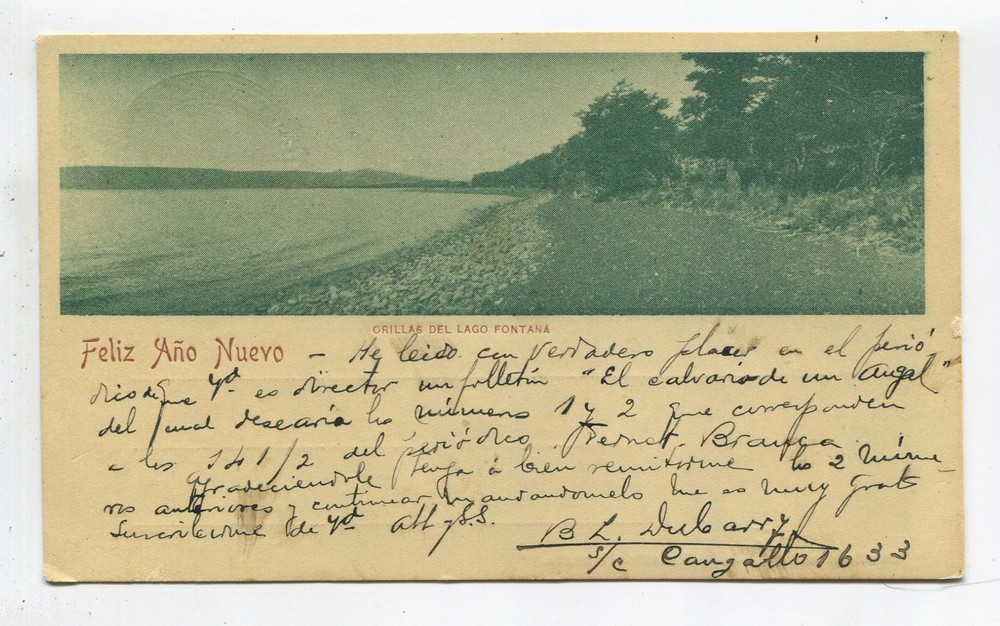 ORILLAS DEL LAGO FONTANA
Feliz Año Nuevo – He leido con verdadero placer en el perió
dico de que Vd es director un folletín "El calvario de un angel"
del cual desearia los números 1 y 2 que corresponden
a los 141/2 del periódico Fernet-Branca.
Agradeciendole tenga á bien remitirme los 2 núme-
ros anteriores y continuar mandandomelo me es muy grato
suscribirme de Vd att y S.S.
B L. Dubarry
s/c Cangallo 1633